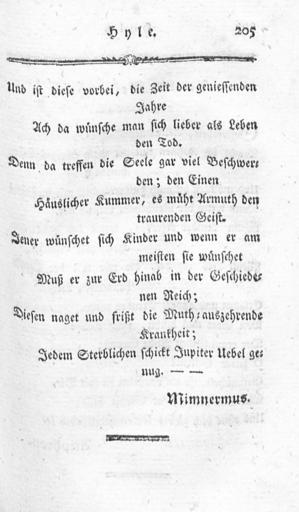 Hyle. 205
Und ist diese vorbei, die Zeit der geniessenden
Jahre
Ach da wünsche man sich lieber als Leben
den Tod.
Denn da treffen die Seele gar viel Beschwer-
den; den Einen
Häuslicher Kummer, es müht Armuth den
traurenden Geist.
Jener wünschet sich Kinder und wenn er am
meisten sie wünschet
Muß er zur Erd hinab in der Geschiede-
nen Reich;
Diesen naget und frißt die Muth-auszehrende
Krankheit;
Jedem Sterblichen schickt Jupiter Uebel ge-
nug. — —
Mimnermus.